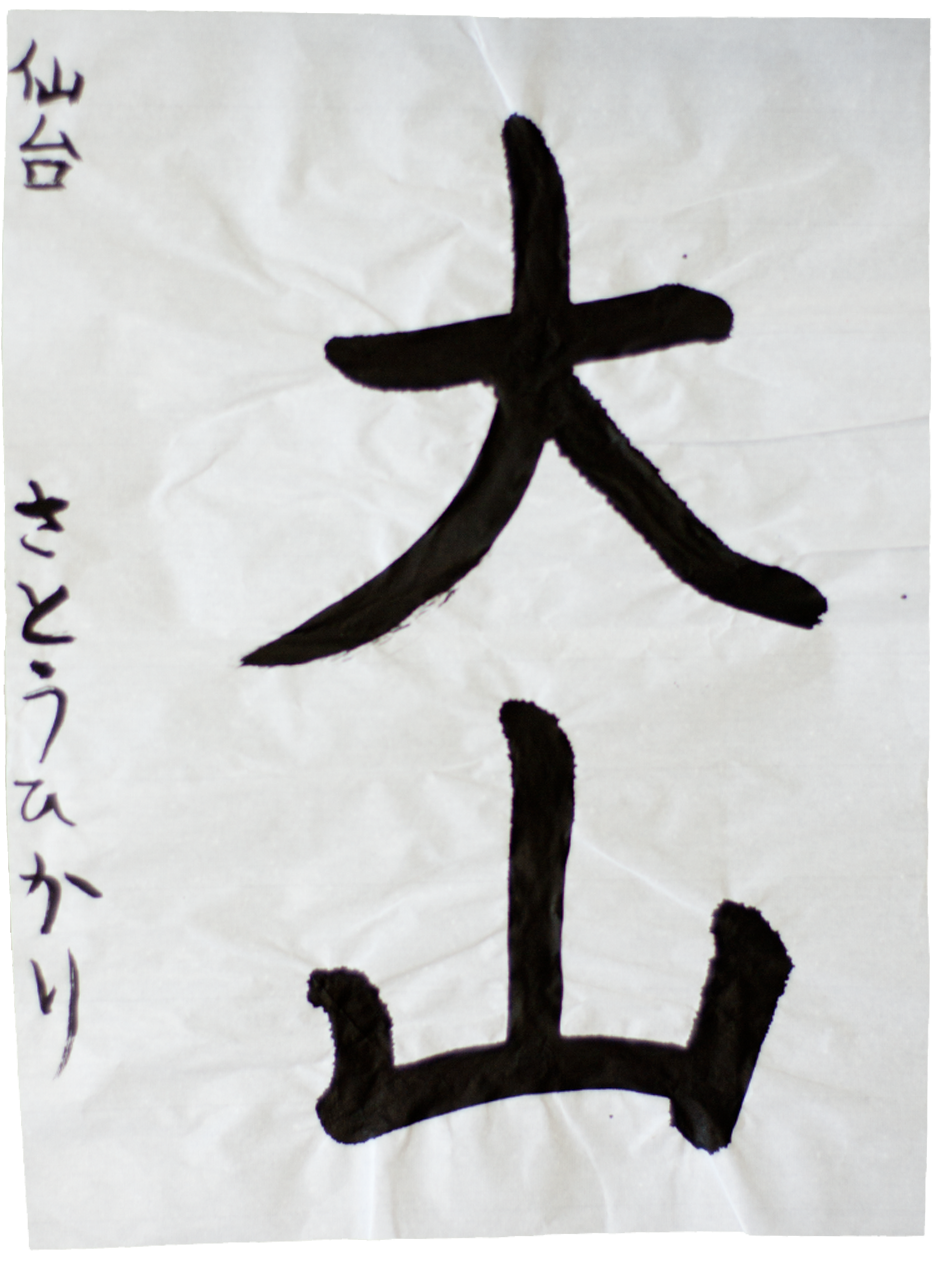 大山
仙台 さとうひかり